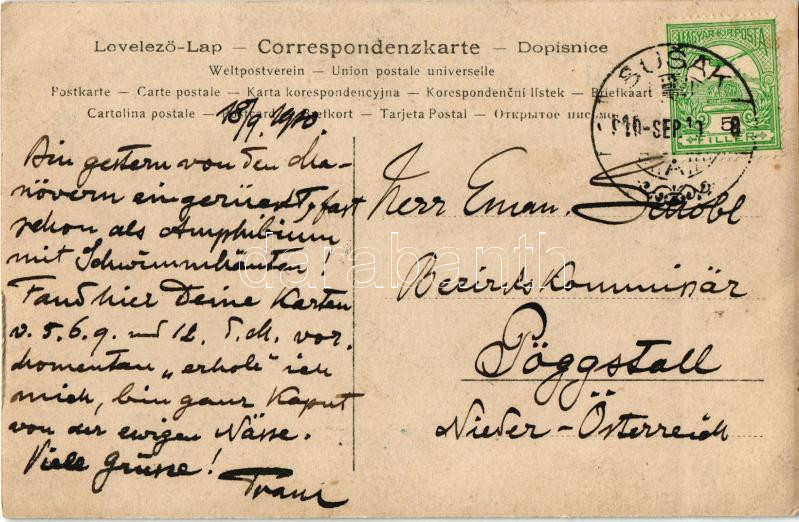 Levelező-Lap — Correspondenzkarte — Dopisnice
Weltpostverein — Union postale universelle
Postkarte — Carte postale — Karta korespondencyjna — Korespondenční lístek — Briefkaart
Cartolina postale — Postcard — Brefkort — Tarjeta Postal — Открытое письмо
MAGYAR KIR. POSTA
5
FILLÉR
SUŠAK
910-SEP.
18/9. 1910
Bin gestern von den Ma-
növern eingerückt, fast
schon als Amphibium
mit Schwimmhäuten!
Fand hier Deine Karten
v. 5. 6. 9. und 12. d. M. vor.
Momentan „erhole" ich
mich, bin ganz kaput
von der ewigen Nässe.
Viele Grüsse!
Franz
Herr Eman.
Bezirkskommissär
Pöggstall
Nieder-Österreich
darabanth